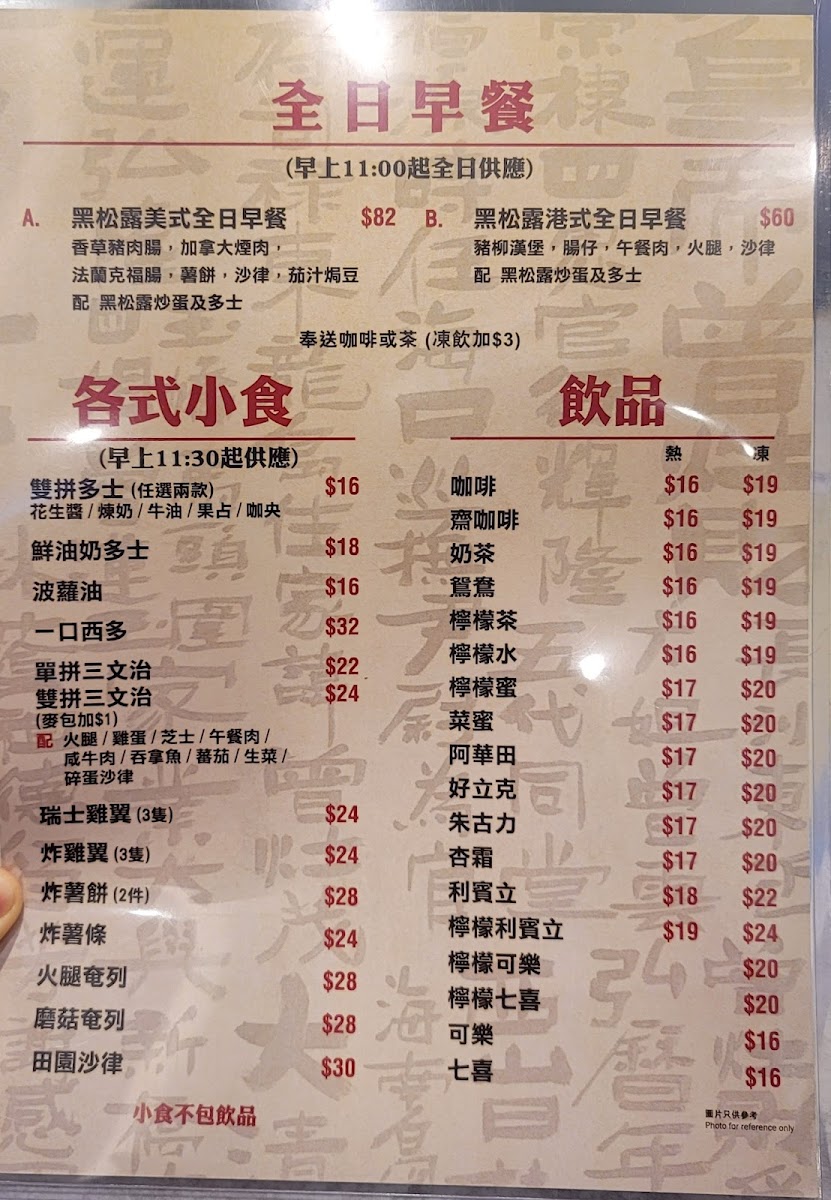 全日早餐
(早上11:00起全日供應)
A. 黑松露美式全日早餐 $82
香草豬肉腸，加拿大煙肉，
法蘭克福腸，薯餅，沙律，茄汁焗豆
配 黑松露炒蛋及多士
B. 黑松露港式全日早餐 $60
豬柳漢堡，腸仔，午餐肉，火腿，沙律
配 黑松露炒蛋及多士
奉送咖啡或茶 (凍飲加$3)
各式小食
(早上11:30起供應)
雙拼多士 (任選兩款) $16
花生醬 / 煉奶 / 牛油 / 果占 / 咖央
鮮油奶多士 $18
波蘿油 $16
一口西多 $32
單拼三文治 $22
雙拼三文治 $24
(麥包加$1)
配 火腿 / 雞蛋 / 芝士 / 午餐肉 /
咸牛肉 / 吞拿魚 / 蕃茄 / 生菜 /
碎蛋沙律
瑞士雞翼 (3隻) $24
炸雞翼 (3隻) $24
炸薯餅 (2件) $28
炸薯條 $24
火腿奄列 $28
磨菇奄列 $28
田園沙律 $30
小食不包飲品
飲品
熱 凍
咖啡 $16 $19
齋咖啡 $16 $19
奶茶 $16 $19
鴛鴦 $16 $19
檸檬茶 $16 $19
檸檬水 $16 $19
檸檬蜜 $17 $20
菜蜜 $17 $20
阿華田 $17 $20
好立克 $17 $20
朱古力 $17 $20
杏霜 $17 $20
利賓立 $18 $22
檸檬利賓立 $19 $24
檸檬可樂 $20
檸檬七喜 $20
可樂 $16
七喜 $16
圖片只供參考
Photo for reference only